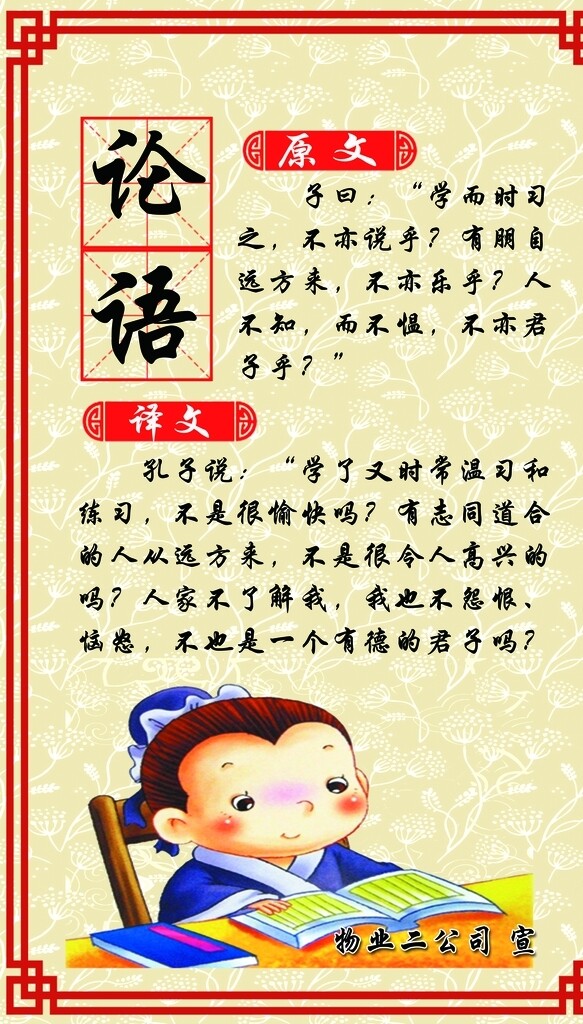 论
语
原文
子曰：“学而时习
之，不亦说乎？有朋自
远方来，不亦乐乎？人
不知，而不愠，不亦君
子乎？”
译文
孔子说：“学了又时常温习和
练习，不是很愉快吗？有志同道合
的人从远方来，不是很令人高兴的
吗？人家不了解我，我也不怨恨、
恼怒，不也是一个有德的君子吗？
物业二公司 宣